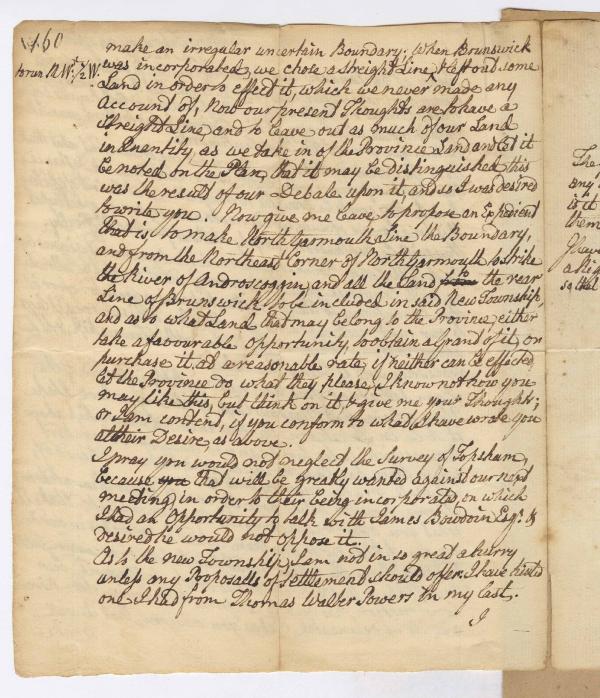 160
make an irregular uncertain Boundary; When Brunswick
to run N Wt ½ W. was incorporated, we chose a streight Line, & left out some
Land in order to effect it, which we never made any
Account of, Now our present Thoughts are to have a
streight Line, and to leave out as much of our Land
in Quantity, as we take in of the Province Land and let it
be noted on the Plan, that it may be distinguished, this
was the result of our Debate upon it, and so I was desired
to write you. Now give me leave to propose an Expedient
that is to make North Yarmouth Line the Boundary,
and from the Northeast Corner of North Yarmouth to strike
the River of Androscoggin and all the Land to the rear
Line of Brunswick to be included in said New Township,
and as to what Land that may belong to the Province, either
take a favourable opportunity, to obtain a Grant of it, or
purchase it at a reasonable rate, if neither can be effected
let the Province do what they please, I know not how you
may like this, but think on it, & give me your Thoughts;
or I am content, if you conform to what I have wrote you
at their Desire, as above.
I pray you would not neglect the Survey of Topsham,
because that will be greatly wanted against our next
meeting, in order to their being incorporated, on which
I had an Opportunity to talk with James Bowdoin Esqr. &
desired he would not oppose it.
As to the new Township, I am not in so great a hurry
unless any Proposalls of Settlement should offer. I have hinted
one I had from Thomas Walber Powers in my last.
I
The
any
is it
them
I have
a Reg
so that